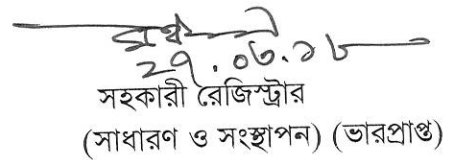 ২৭.০৬.১৮
সহকারী রেজিস্ট্রার
(সাধারণ ও সংস্থাপন) (ভারপ্রাপ্ত)